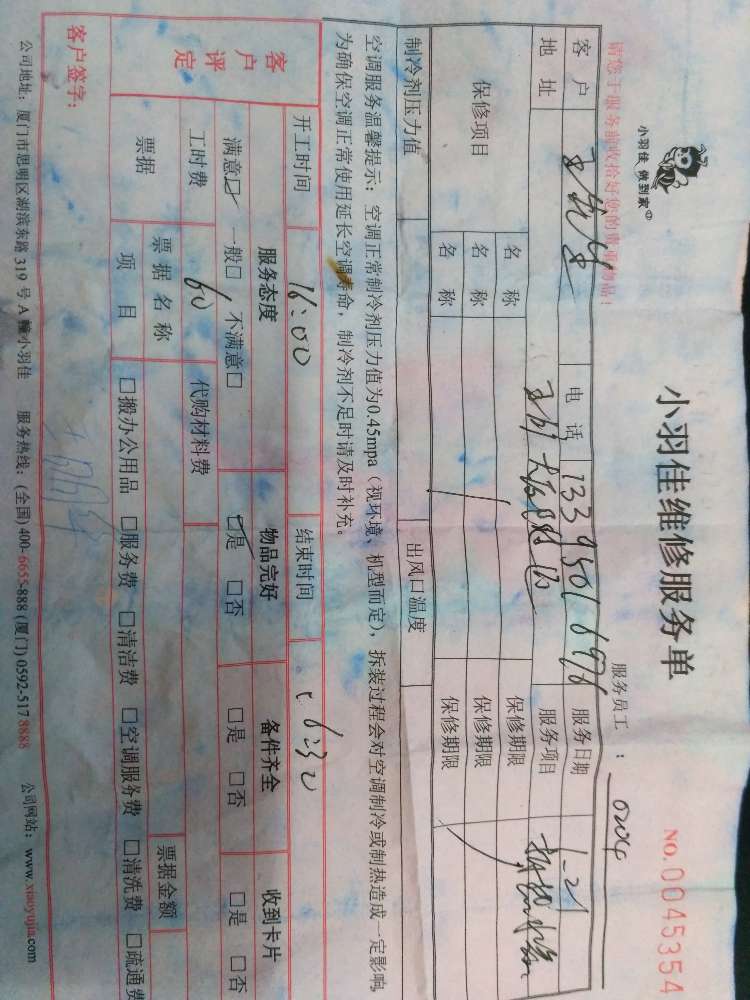 小羽佳 做到家
小羽佳维修服务单
NO.0045354
请您于服务前收拾好您的贵重物品！
服务员工： 0204
客户 电话 133 9501 6976 服务日期 1-21
地址 服务项目
保修项目 名称 保修期限
名称 保修期限
名称 保修期限
制冷剂压力值 出风口温度
空调服务温馨提示：空调正常制冷剂压力值为0.45mpa（视环境、机型而定），拆装过程会对空调制冷或制热造成一定影响，
为确保空调正常使用延长空调寿命，制冷剂不足时请及时补充。
开工时间 16:00 结束时间 16:30
客户评定 服务态度 物品完好 备件齐全 收到卡片
满意☑ 一般□ 不满意□ ☑是 □否 □是 □否 □是 □否
工时费 60 代购材料费
票据 票据名称 票据金额
项目 □搬办公用品 □服务费 □清洁费 □空调服务费 □清洗费 □疏通费
客户签字：
公司地址：厦门市思明区湖滨东路319号A幢小羽佳 服务热线：(全国)400-6655-888 (厦门)0592-517 8888 公司网站：www.xiaoyujia.com